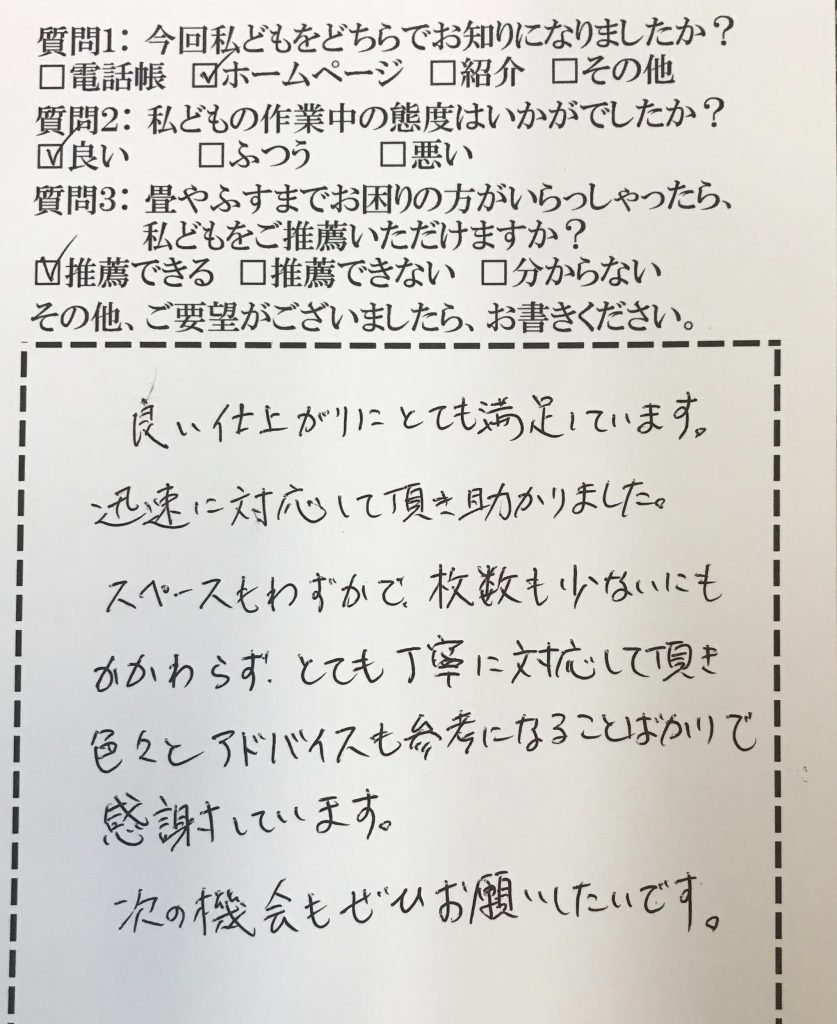 質問1：今回私どもをどちらでお知りになりましたか？
□電話帳 ☑ホームページ □紹介 □その他
質問2：私どもの作業中の態度はいかがでしたか？
☑良い □ふつう □悪い
質問3：畳やふすまでお困りの方がいらっしゃったら、
私どもをご推薦いただけますか？
☑推薦できる □推薦できない □分からない
その他、ご要望がございましたら、お書きください。
良い仕上がりにとても満足しています。
迅速に対応して頂き助かりました。
スペースもわずかで、枚数も少ないにも
かかわらず、とても丁寧に対応して頂き
色々とアドバイスも参考になることばかりで
感謝しています。
次の機会もぜひお願いしたいです。